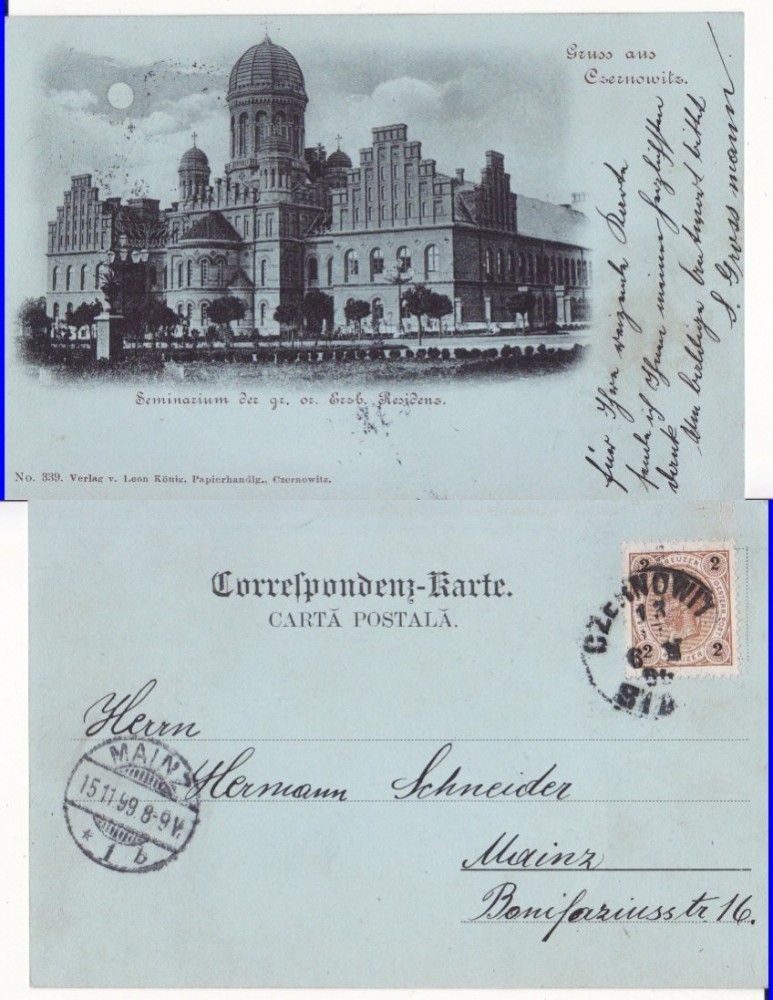 Gruss aus
Czernowitz.
Für Ihre reizende Karte
sende ich Ihnen meinen herzlichsten
Dank
Um baldige Antwort bittet
S. Grossmann
Seminarium der gr. or. Erzb. Residenz.
No. 339. Verlag v. Leon König, Papierhandlg., Czernowitz.
Correſpondenz-Karte.
CARTĂ POSTALĂ.
2 KREUZER 2
2 KREUZER 2
CZERNOWITZ
Herrn
Hermann Schneider
Mainz
Bonifaziusstr. 16.
MAINZ
15.11.99. 8-9 V.
* 1 b